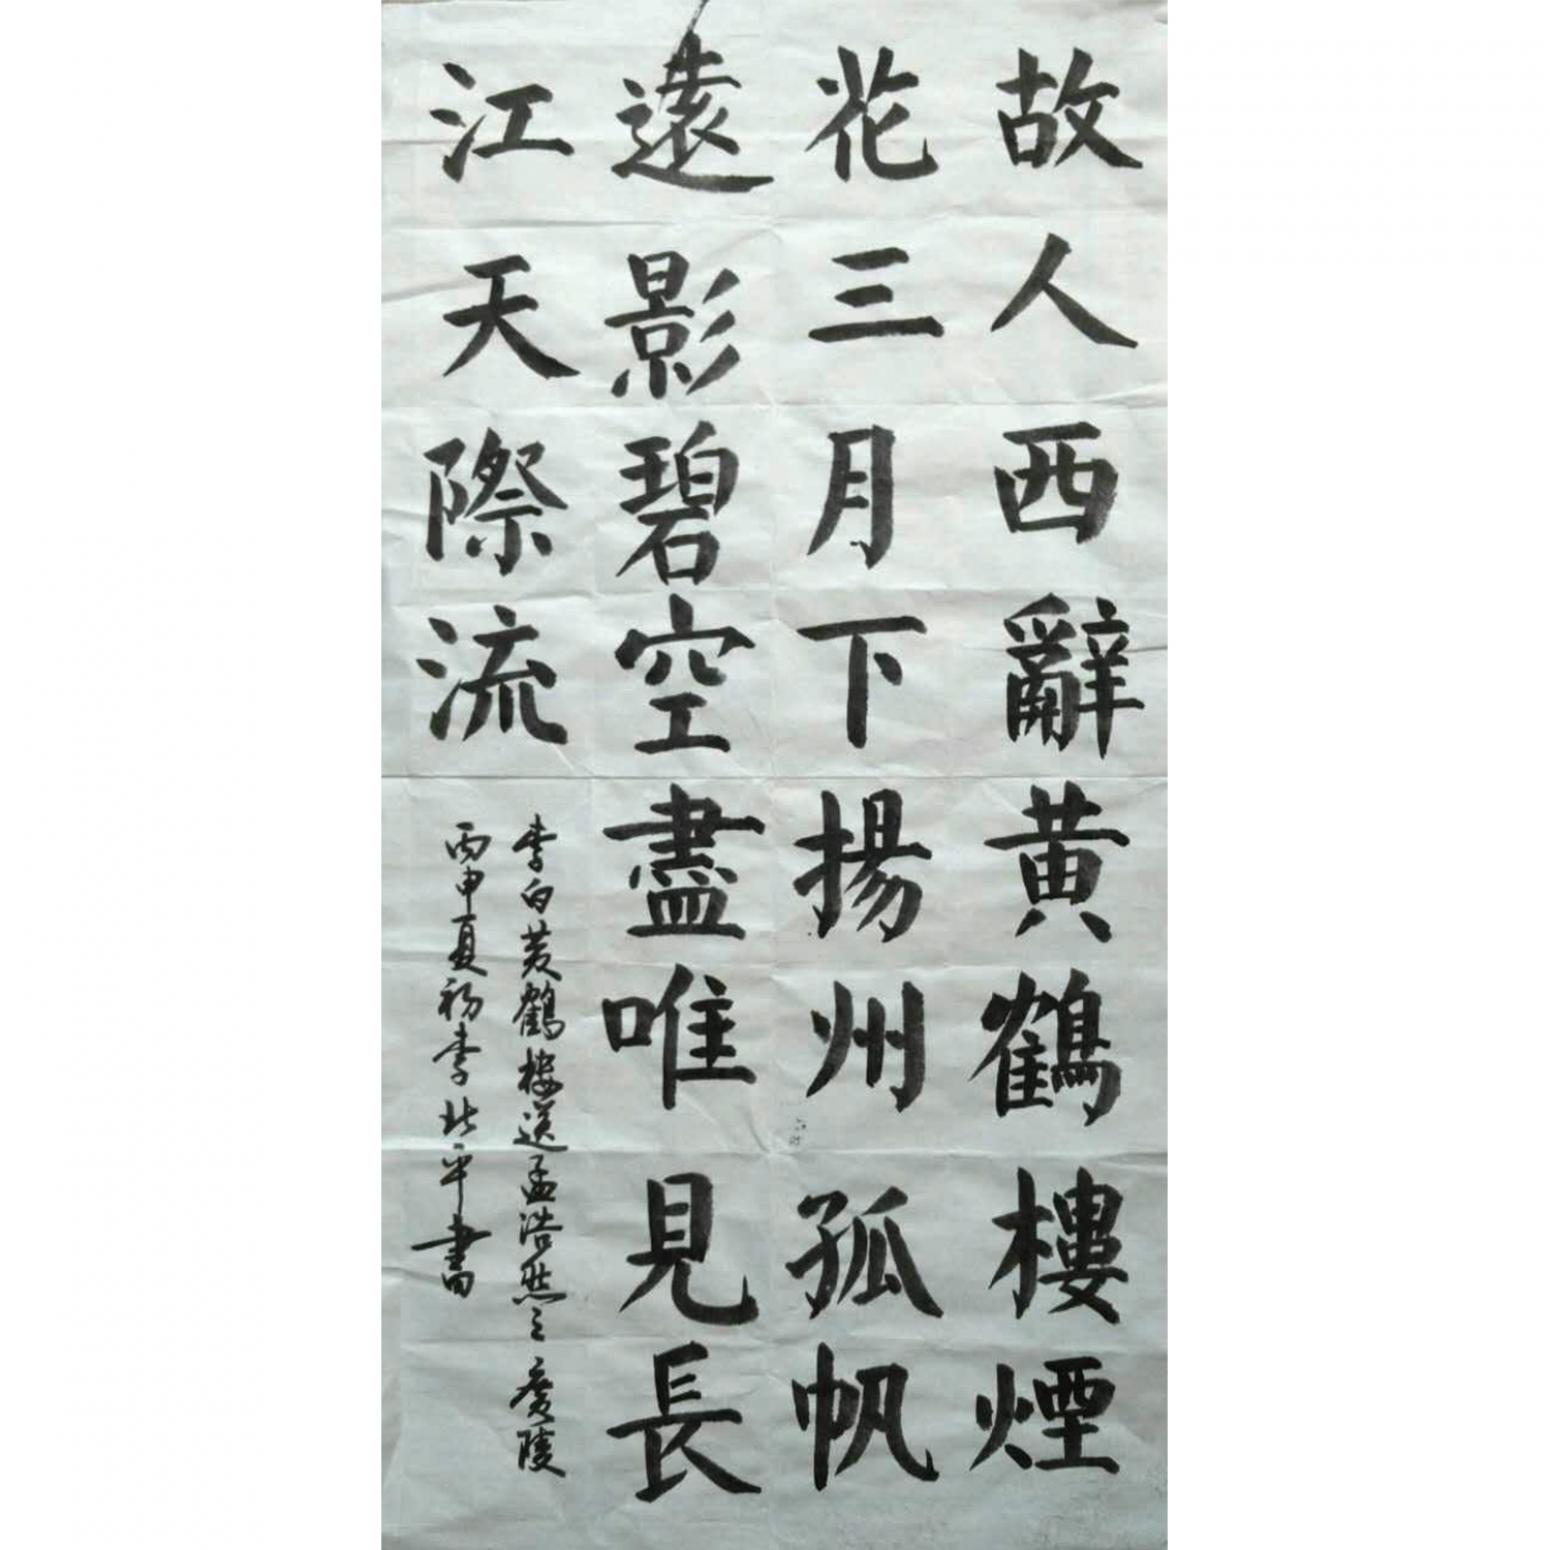 故人西辭黄鶴樓煙
花三月下揚州孤帆
遠影碧空盡唯見長
江天際流
李白黄鶴楼送孟浩然之廣陵
丙申夏初李北平書